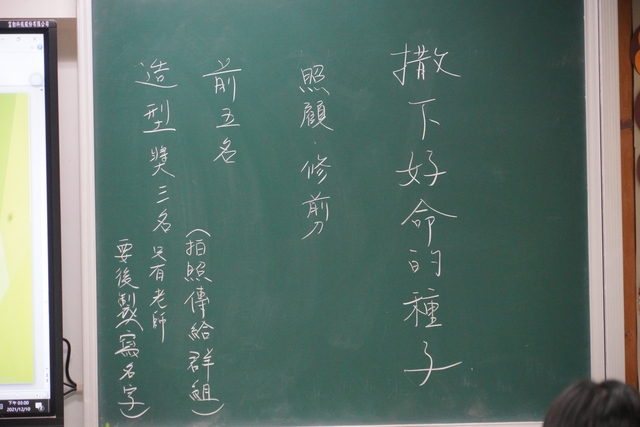 撒下好命的種子
照顧.修剪
前五名
(拍照傳給群組)
造型獎三名
只有老師
要後製(寫名字)
下午 02:00
2021/12/10